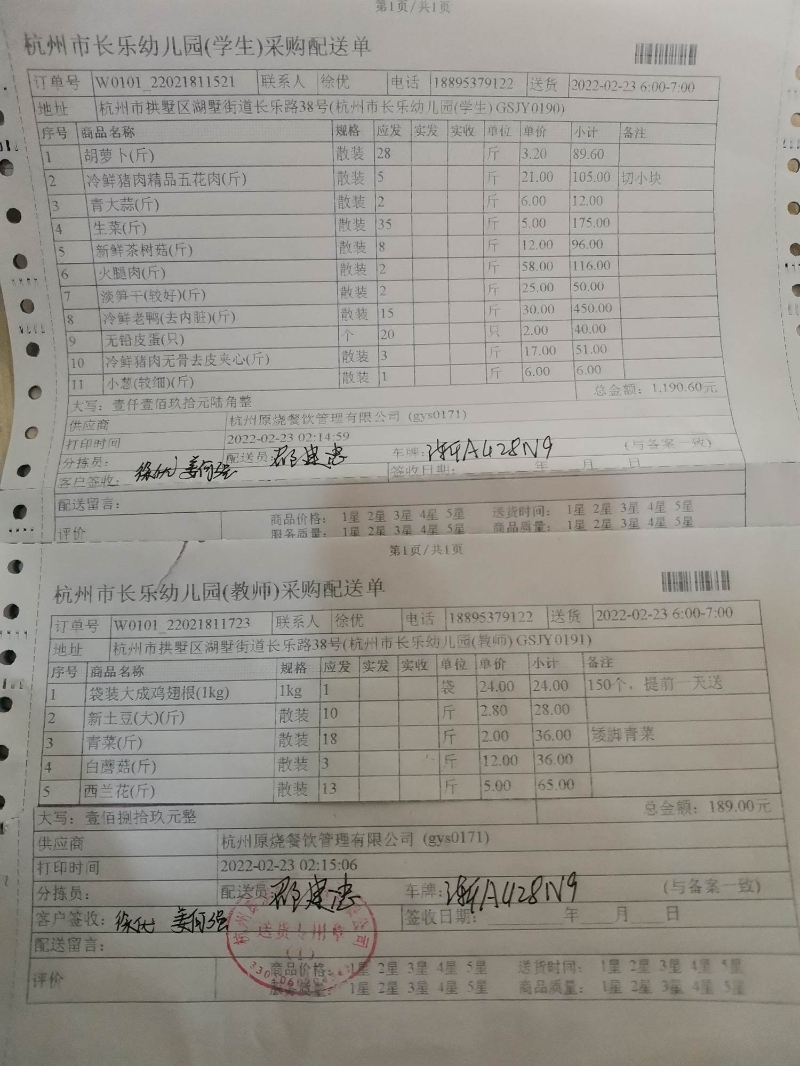 第1页/共1页
杭州市长乐幼儿园(学生)采购配送单
订单号 W0101_22021811521 联系人 徐优 电话 18895379122 送货 2022-02-23 6:00-7:00
地址 杭州市拱墅区湖墅街道长乐路38号(杭州市长乐幼儿园(学生) GSJY0190)
序号 商品名称 规格 应发 实发 实收 单位 单价 小计 备注
1 胡萝卜(斤) 散装 28 斤 3.20 89.60
2 冷鲜猪肉精品五花肉(斤) 散装 5 斤 21.00 105.00 切小块
3 青大蒜(斤) 散装 2 斤 6.00 12.00
4 生菜(斤) 散装 35 斤 5.00 175.00
5 新鲜茶树菇(斤) 散装 8 斤 12.00 96.00
6 火腿肉(斤) 散装 2 斤 58.00 116.00
7 淡笋干(较好)(斤) 散装 2 斤 25.00 50.00
8 冷鲜老鸭(去内脏)(斤) 散装 15 斤 30.00 450.00
9 无铅皮蛋(只) 个 20 只 2.00 40.00
10 冷鲜猪肉无骨去皮夹心(斤) 散装 3 斤 17.00 51.00
11 小葱(较细)(斤) 散装 1 斤 6.00 6.00
大写：壹仟壹佰玖拾元陆角整 总金额：1,190.60元
供应商 杭州原烧餐饮管理有限公司 (gys0171)
打印时间 2022-02-23 02:14:59
分拣员： 配送员: 车牌: 浙A428N9 (与备案一致)
客户签收: 徐优 姜何强 签收日期: 年 月 日
配送留言：
评价 商品价格： 1星 2星 3星 4星 5星 送货时间： 1星 2星 3星 4星 5星
服务质量： 1星 2星 3星 4星 5星 商品质量： 1星 2星 3星 4星 5星
第1页/共1页
杭州市长乐幼儿园(教师)采购配送单
订单号 W0101_22021811723 联系人 徐优 电话 18895379122 送货 2022-02-23 6:00-7:00
地址 杭州市拱墅区湖墅街道长乐路38号(杭州市长乐幼儿园(教师) GSJY0191)
序号 商品名称 规格 应发 实发 实收 单位 单价 小计 备注
1 袋装大成鸡翅根(1kg) 1kg 1 袋 24.00 24.00 150个，提前一天送
2 新土豆(大)(斤) 散装 10 斤 2.80 28.00
3 青菜(斤) 散装 18 斤 2.00 36.00 矮脚青菜
4 白蘑菇(斤) 散装 3 斤 12.00 36.00
5 西兰花(斤) 散装 13 斤 5.00 65.00
大写：壹佰捌拾玖元整 总金额：189.00元
供应商 杭州原烧餐饮管理有限公司 (gys0171)
打印时间 2022-02-23 02:15:06
分拣员： 配送员: 车牌: 浙A428N9 (与备案一致)
客户签收: 徐优 姜何强 签收日期: 年 月 日
送货专用章
配送留言：
评价 商品价格： 1星 2星 3星 4星 5星 送货时间： 1星 2星 3星 4星 5星
服务质量： 1星 2星 3星 4星 5星 商品质量： 1星 2星 3星 4星 5星